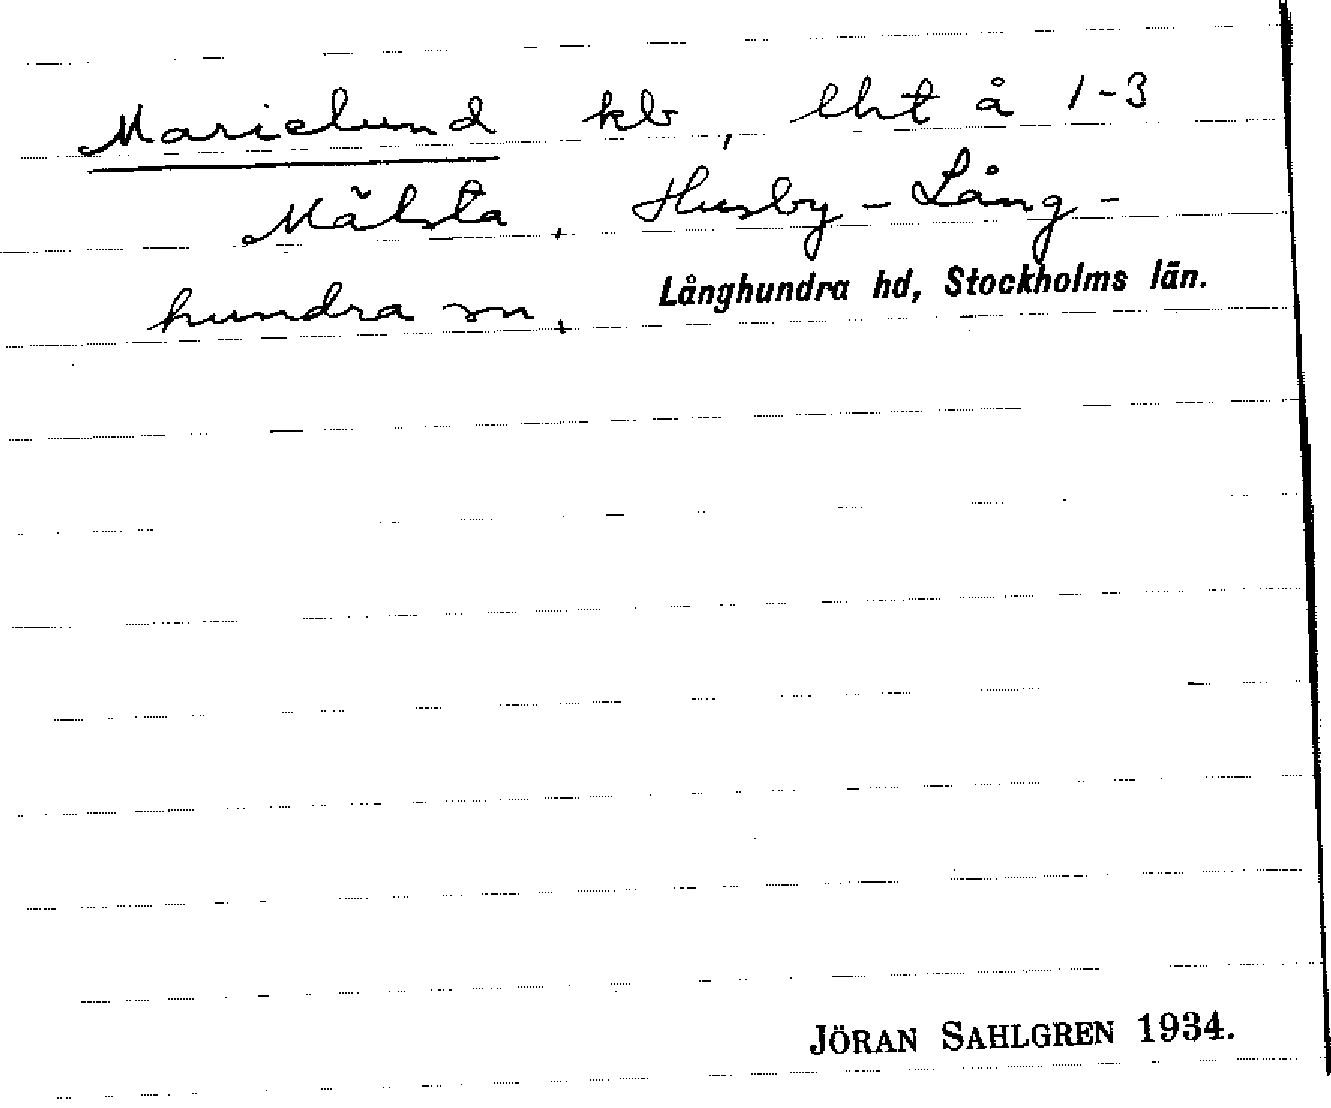 Marielund kb, lht å 1-3
Mälsta, Husby-Lång-
hundra sn, Långhundra hd, Stockholms län.
JÖRAN SAHLGREN 1934.